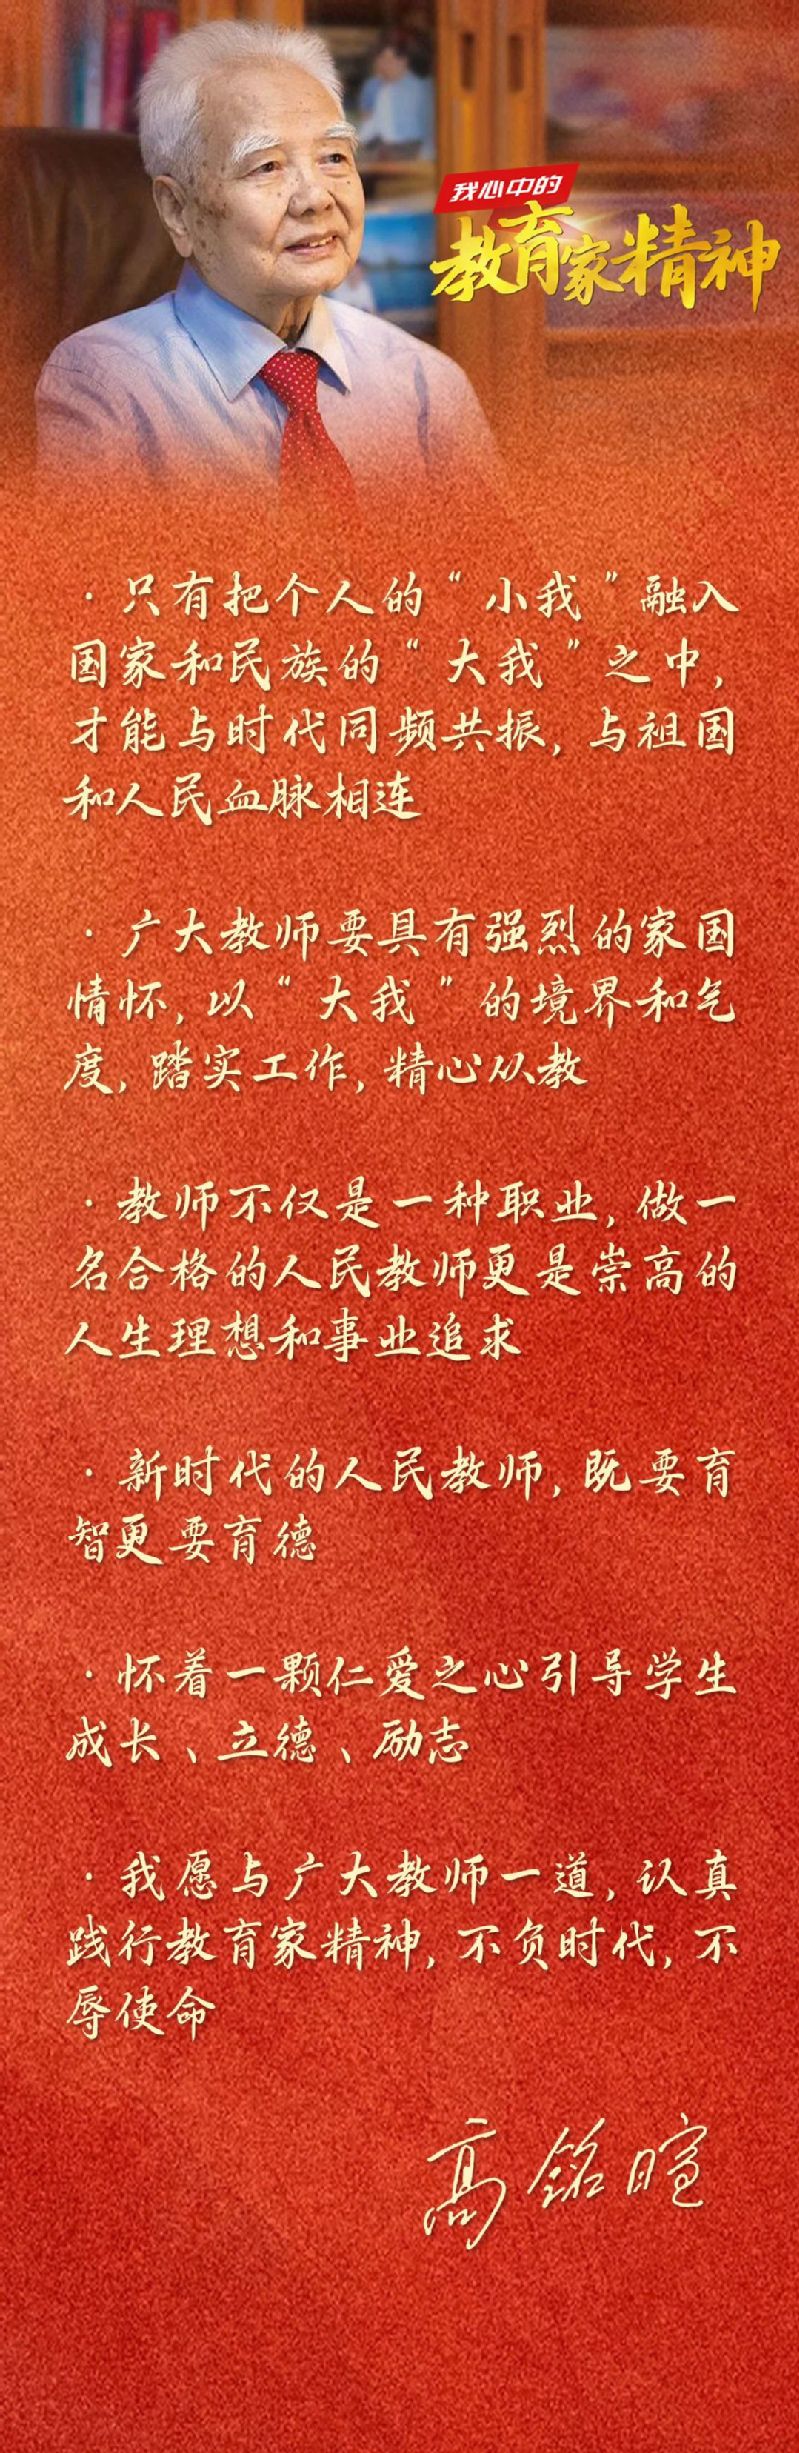 我心中的
教育家精神
·只有把个人的“小我”融入
国家和民族的“大我”之中,
才能与时代同频共振,与祖国
和人民血脉相连
·广大教师要具有强烈的家国
情怀,以“大我”的境界和气
度,踏实工作,精心从教
·教师不仅是一种职业,做一
名合格的人民教师更是崇高的
人生理想和事业追求
·新时代的人民教师,既要育
智更要育德
·怀着一颗仁爱之心引导学生
成长、立德、励志
·我愿与广大教师一道,认真
践行教育家精神,不负时代,不
辱使命
高铭暄